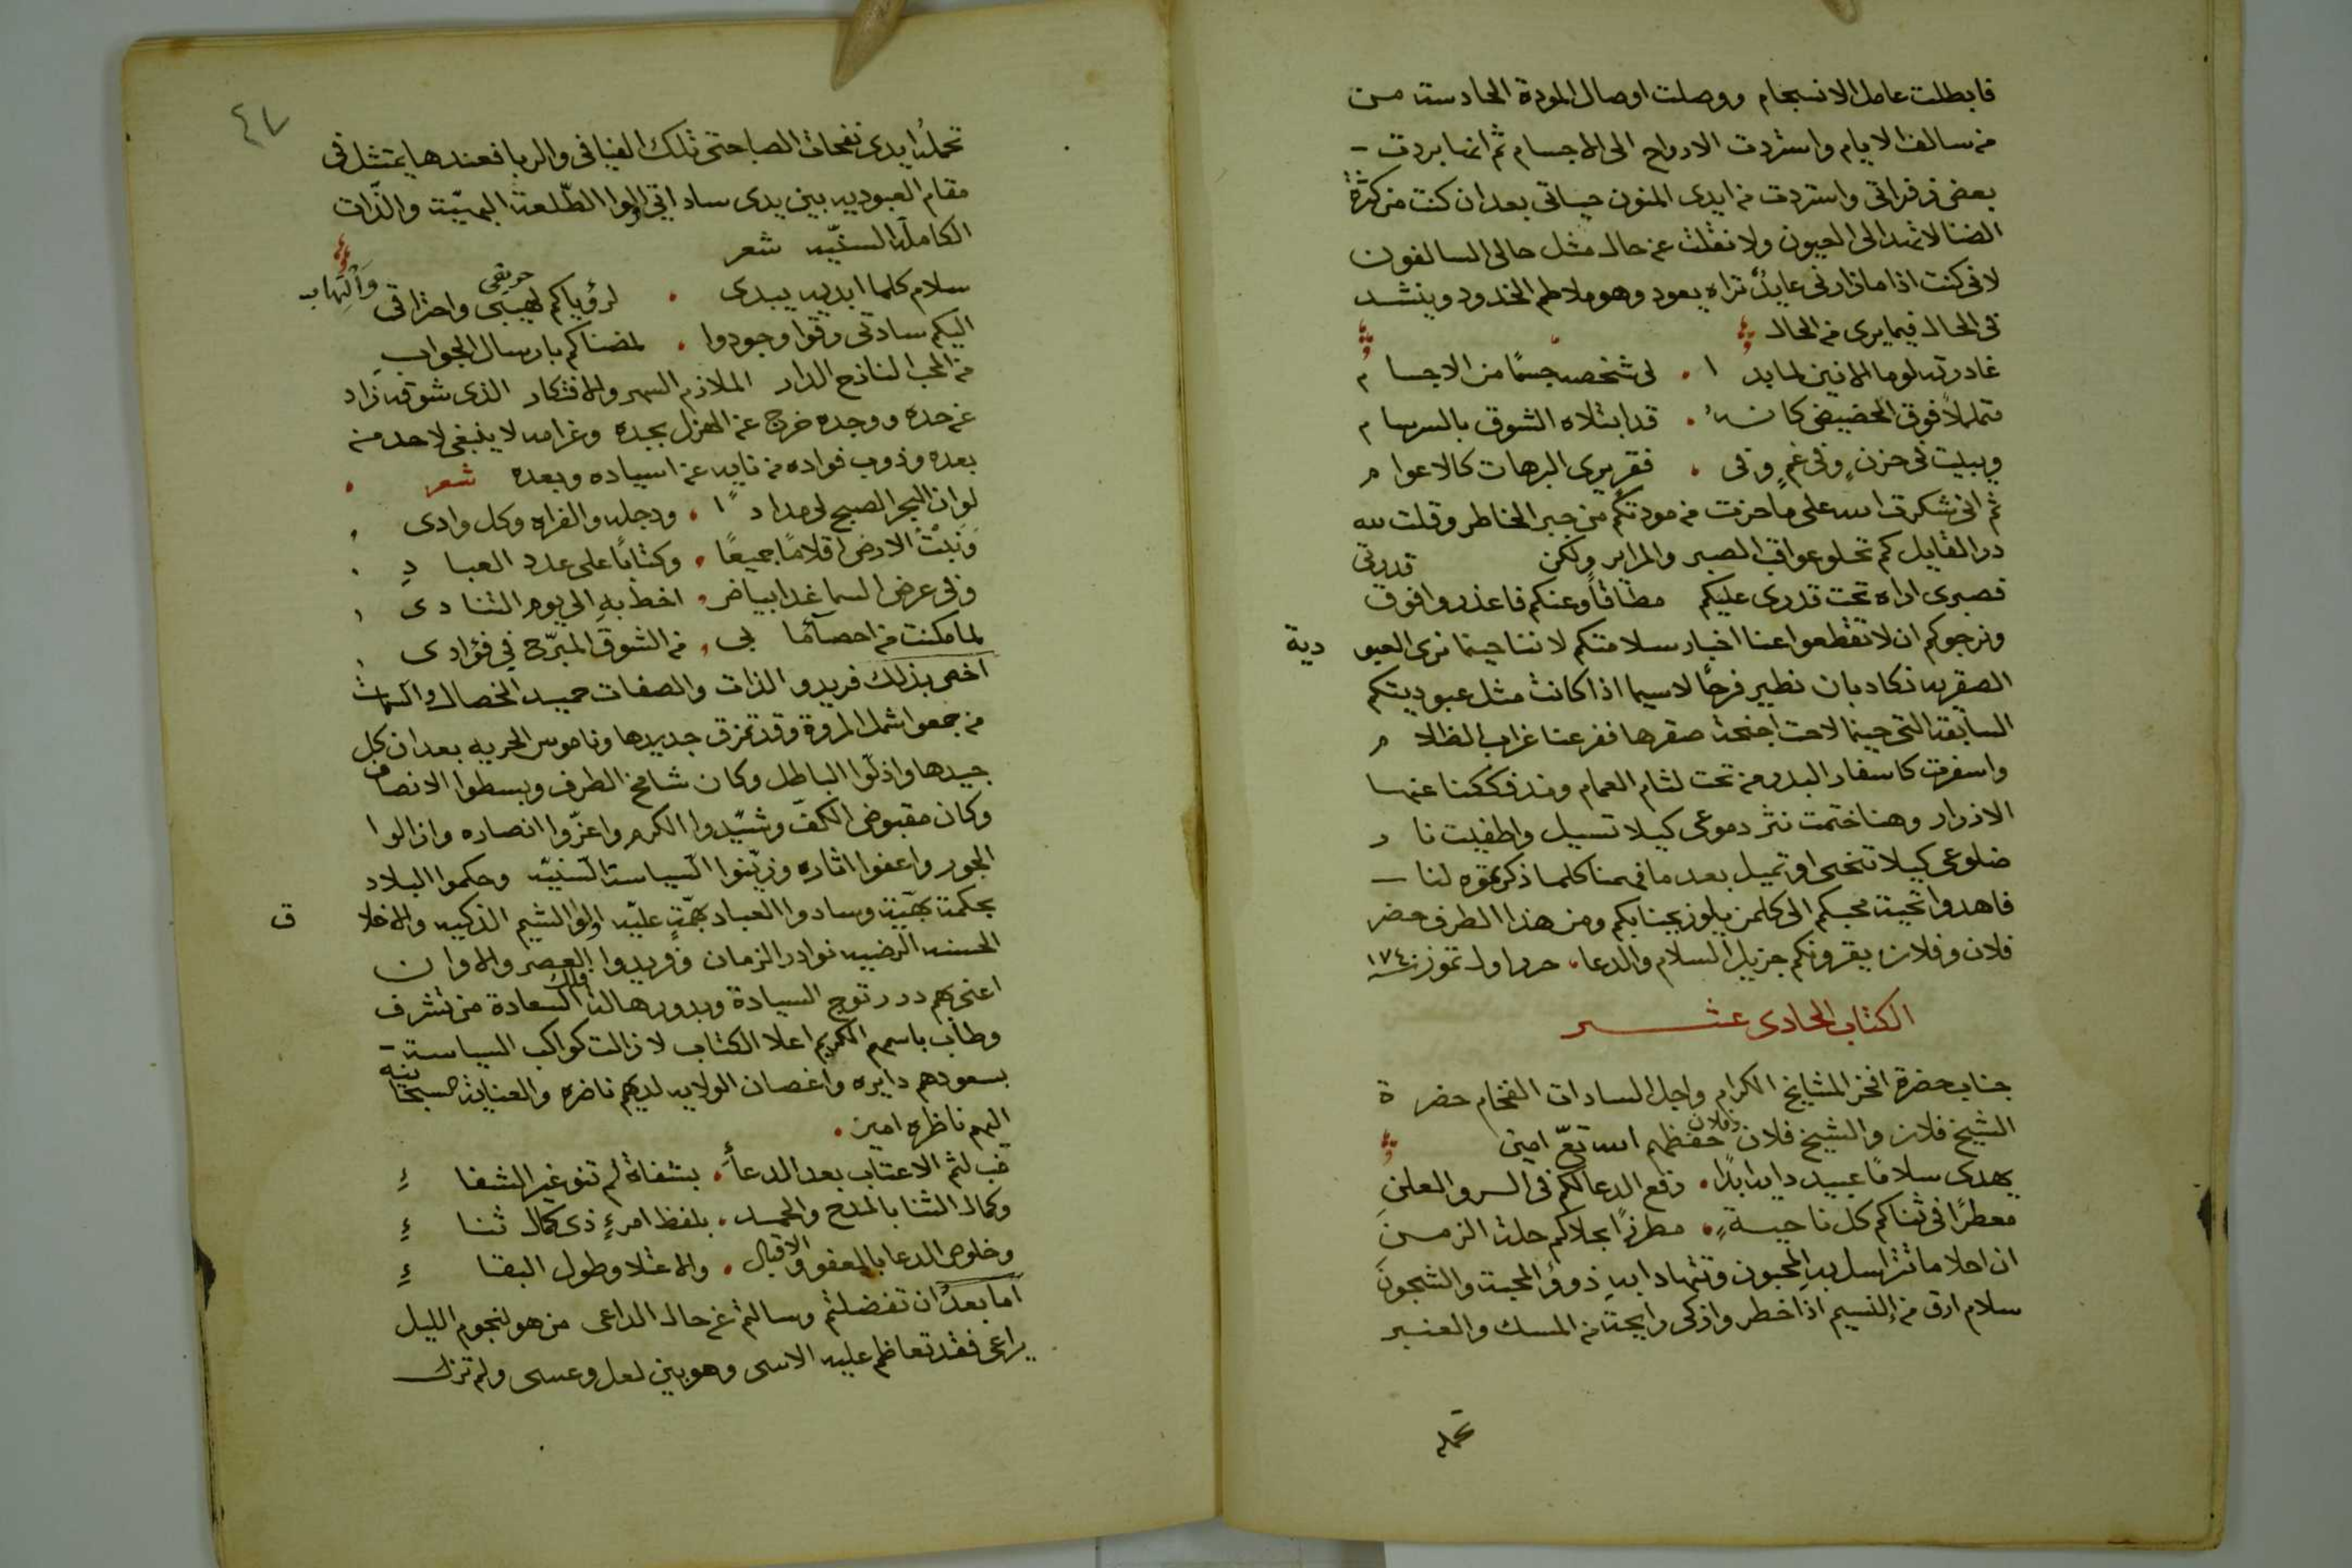 فابطلت عامل الانسجام ووصلت اوصال المودة الحادسته من
من سالف الايام واستردت الارواح الى الاجسام ثم انها بردت
بعض زفراتي واستردت من ايدى المنون حياتي بعد ان كنت من كثرة
الضنا لا تهدا لى العيون ولا نقلت عن حال مثل حالى السالفون
لانى كنت اذا ما زارنى عايدٌ تراه يعود وهو ملاطم الخدود وينشد
فى الحال فيما يرى من الحال
غادرته لولا الانين لما بدا . لى شخصه جسمًا من الاجسام
متململًا فوق الحضيض كانهُ . قد ابتلاه الشوق بالسرسام
ويبيت فى حزنٍ وفى غمٍ وفى . فقر يرى البرهات كالاعوام
ثم انى شكرت الله على ما حزت من مودتكم من جبر الخاطر وقلت لله
در القايل كم تحلو عواقب الصبر والمراير ولكن قدرتى
فصبرى اراه تحت قدرى عليكم مطاقاً وعنكم فاعذروا فوق
ونرجوكم ان لا تقطعوا عنا اخبار سلامتكم لاننا حينما نرى العبودية
الصقريه نكاد بان نطير فرحًا لاسيما اذا كانت مثل عبوديتكم
السابقة التى حينما لاحت اجنحة صقرها ففر عنا غراب الظلام
واسفرت كاسفار البدر من تحت لثام الغمام ومذ فككنا عنها
الازرار وهنا ختمت نثر دموعى كيلا تسيل واطفيت نار
ضلوعى كيلا تنحنى او تميل بعد ما فهمنا كلما ذكرتموه لنا
فاهدوا تحية محبكم الى كلمن يلوز بجنابكم ومن هذا الطرف حضر
فلان وفلان يقرونكم جزيل السلام والدعا. حرر اول تموز سنة ١٧٤
الكتاب الحادى عشر
جناب حضرة افخر المشايخ الكرام واجل السادات الفخام حضرة
الشيخ فلان والشيخ فلان وفلان حفظهم الله تعّ امين
يهدى سلامًا عبيد دايما ابدًا . رفع الدعا لكم فى السر والعلنِ
معطرًا فى ثناكم كل ناحيةٍ . مطرزًا بجلاكم حلة الزمنَ
ان احلا ما تتراسل بهِ المحبون وتتهادا بهِ ذوو المحبة والشجونَ
سلام ارق من النسيم اذا خطر واذكى رايحة من المسك والعنبر
تحمله
٤٧
تحملهُ ايدى نفحات الصبا حتى تلك الفيافى والربا فعندها يتمثل فى
مقام العبوديه بين يدى ساداتي اولوا الطّلعة البهيّة والذّات
الكاملة السنيّه شعر
سلام كلما ابديه يبدى . لرؤياكم لهيبى حريقى واحتراقى وَالْتِهابِ
اليكم سادتى رقوا وجودوا . لمضناكم بارسال الجوابِ
من المحب النازح الدار الملازم السهر والافتكار الذى شوقه زاد
عن حده ووجده خرج عن الهزل بجده وغرامه لا ينبغى لاحد من
بعده وذوب فواده من نايه عن اسياده وبعده شعر
لو ان البحر اصبح لى مدادًا . ودجله والفراه وكل وادى
وَنَبْتُ الارض اقلامًا جميعًا . وكتابًا على عدد العبادِ
وفى عرض السما غدا بياض . اخط بهِ الى يوم التنادى
لما مكنت من احصآئها بى . من الشوق المبرّح في فؤادى
اخص بذلك فريدو الذات والصفات حميد الخصال والسمات
من جمعوا شمل المروة وقد تمزق جديدها وناموس الحريه بعد ان كل
جيدها واذلّوا الباطل وكان شامخ الطرف وبسطوا الانصاف
وكان مقبوض الكفّ وشيّدوا الكرم واعزّوا انصاره وازالوا
الجور واعفوا اثاره وزيّنوا السياسة السنيّه وحكموا البلاد
بحكمة بهيّة وسادوا العباد بهمّةٍ عليّه اولوا الشيم الذكيه والاخلاق
الحسنه الرضيه نوادر الزمان وفريدوا العصر والاوان
اعنى بهم درر توج السيادة وبدور هالة فلك السعادة من تشرف
وطاب باسمهم الكريم اعلا الكتاب لا زالت كواكب السياسة
بسعودهم دايره واغصان الولايه لديهم ناضره والعناية السبحانيه
اليهم ناظره امين.
غب لثم الاعتاب بعد الدعاءَ . بشفاة لم تنو غير الشفاءِ
وكمال الثنا بالمدح والحمد . بلفظ امرءٍ ذى كمال ثناءِ
وخلوص الدعا بالعفو والاقبال . والاعتلا وطول البقاءِ
اما بعدُ ان تفضلتم وسالتم عن حال الداعى من هو لنجوم الليل
يراعى فقد تعاظم عليه الاسى وهو بين لعل وعسى ولم تزل